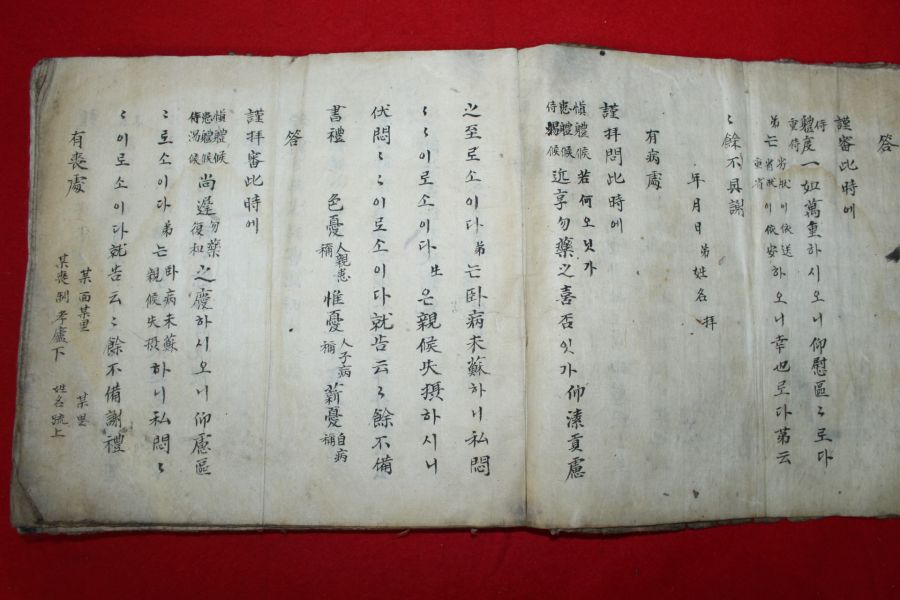 答
謹審此時에
侍重侍體度一如萬重하시오니仰慰區〻로다
弟는省狀이依安하오니幸也로다第云
〻餘不具謝
年月日弟姓名拜
有病處
謹拜問此時에
愼體候患體候侍湯候若何오닛가
近享勿藥之喜否잇가仰溱貢慮
之至로소이다弟는卧病未蘇하니私悶
〻〻이로소이다生은親候失攝하시니
伏悶〻〻이로소이다就告云〻餘不備
書禮 色憂人親患稱惟憂人子病稱薪憂自病稱
答
謹拜審此時에
愼體候患體候侍湯候尚遲勿藥復和之慶하시오니仰慮區
〻로소이다弟는卧病未蘇親候失攝하니私悶〻
〻이로소이다就告云〻餘不備謝禮
有喪處
某面某里 某里
某喪制孝廬下 姓名疏上